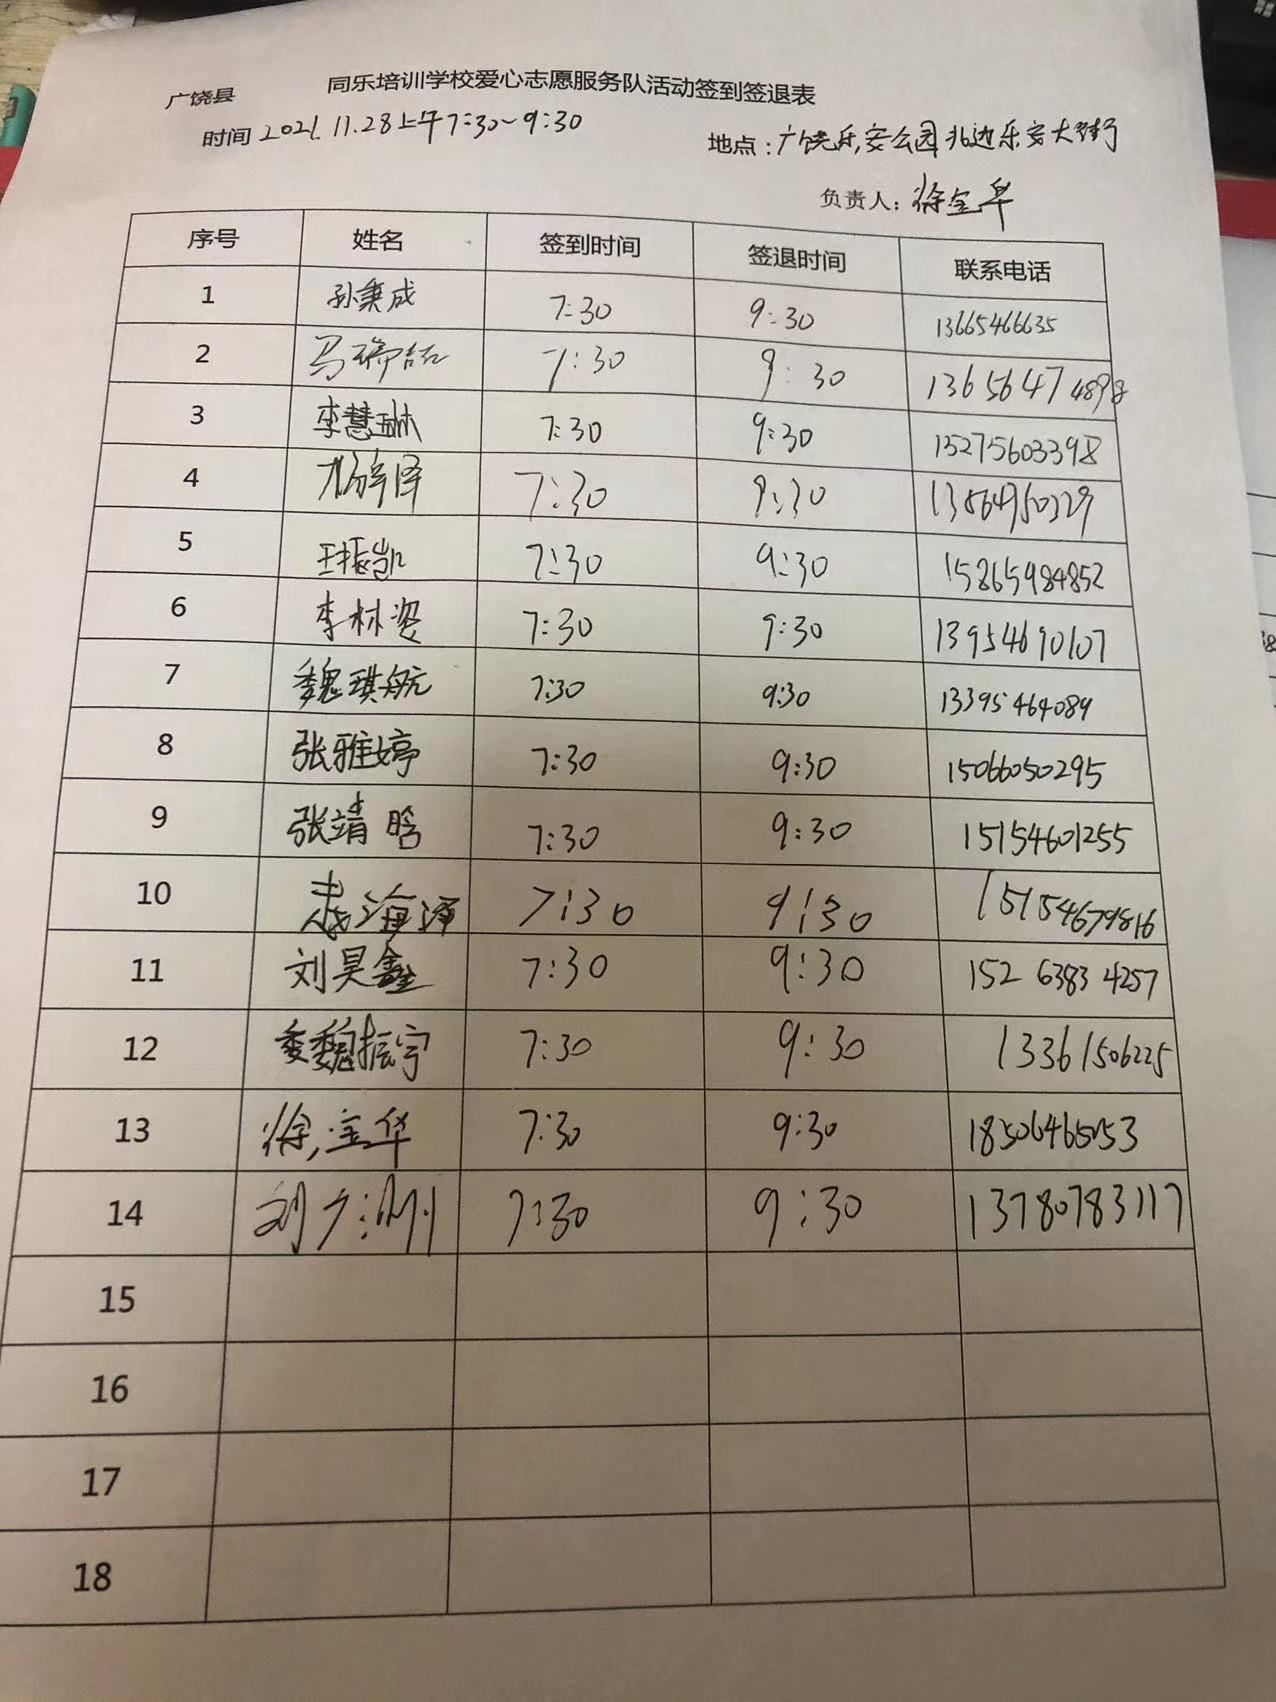 广饶县 同乐培训学校爱心志愿服务队活动签到签退表
时间 2021.11.28上午7:30~9:30 地点:广饶乐安公园北边乐安大街
负责人:徐宝华
序号 姓名 签到时间 签退时间 联系电话
1 孙秉成 7:30 9:30 13665466635
2 7:30 9:30 13656474898
3 李慧琳 7:30 9:30 15275603398
4 7:30 9:30
5 王振凯 7:30 9:30 15865984852
6 李林姿 7:30 9:30 13954690107
7 魏琪航 7:30 9:30 13395464089
8 张雅婷 7:30 9:30 15066050295
9 张靖晗 7:30 9:30 15154601255
10 7:30 9:30
11 刘昊鑫 7:30 9:30 152 6383 4257
12 魏振宇 7:30 9:30 13361506225
13 徐宝华 7:30 9:30
14 7:30 9:30 13780783117
15
16
17
18